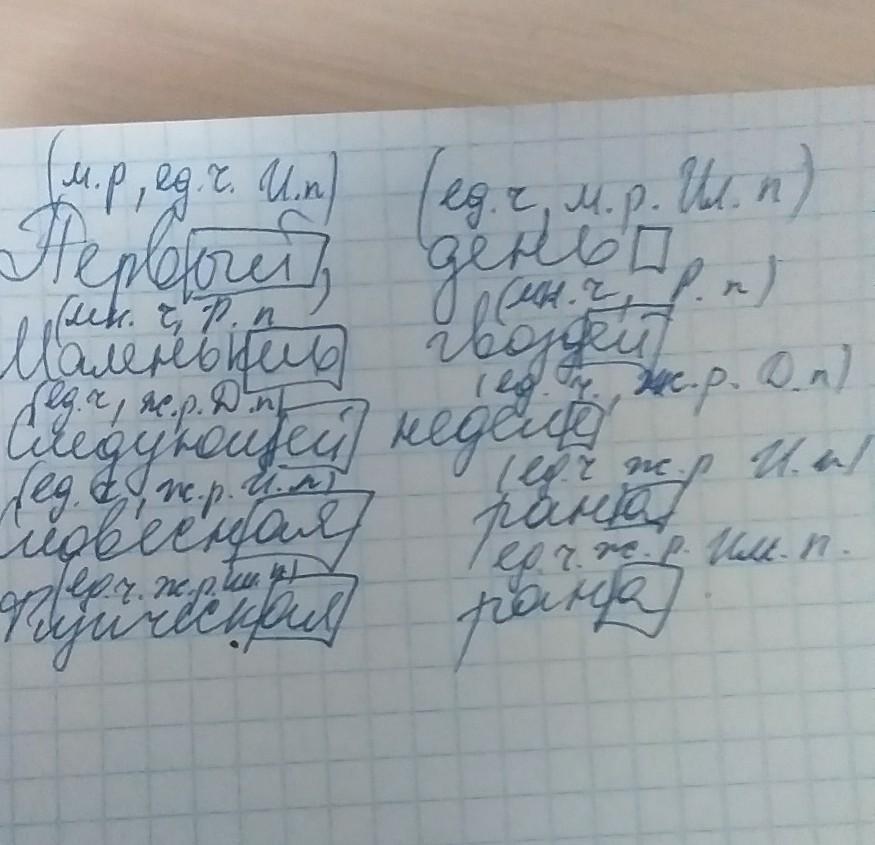 (м.р, ед.ч. И.п) (ед.ч, м.р. Им. п)
Первый, день
(мн. ч, Р. п (мн. ч, Р. п)
гвоздей
(ед.ч, ж.р. Д.п) (ед. ч., ж.р. Д.п)
Следующей неделе
(ед. ч, ж.р. И.п) (ед.ч ж.р И.п)
словесная рана
(ед.ч. ж.р. им. п) (ед.ч. ж.р. Им. п.
Физическая рана